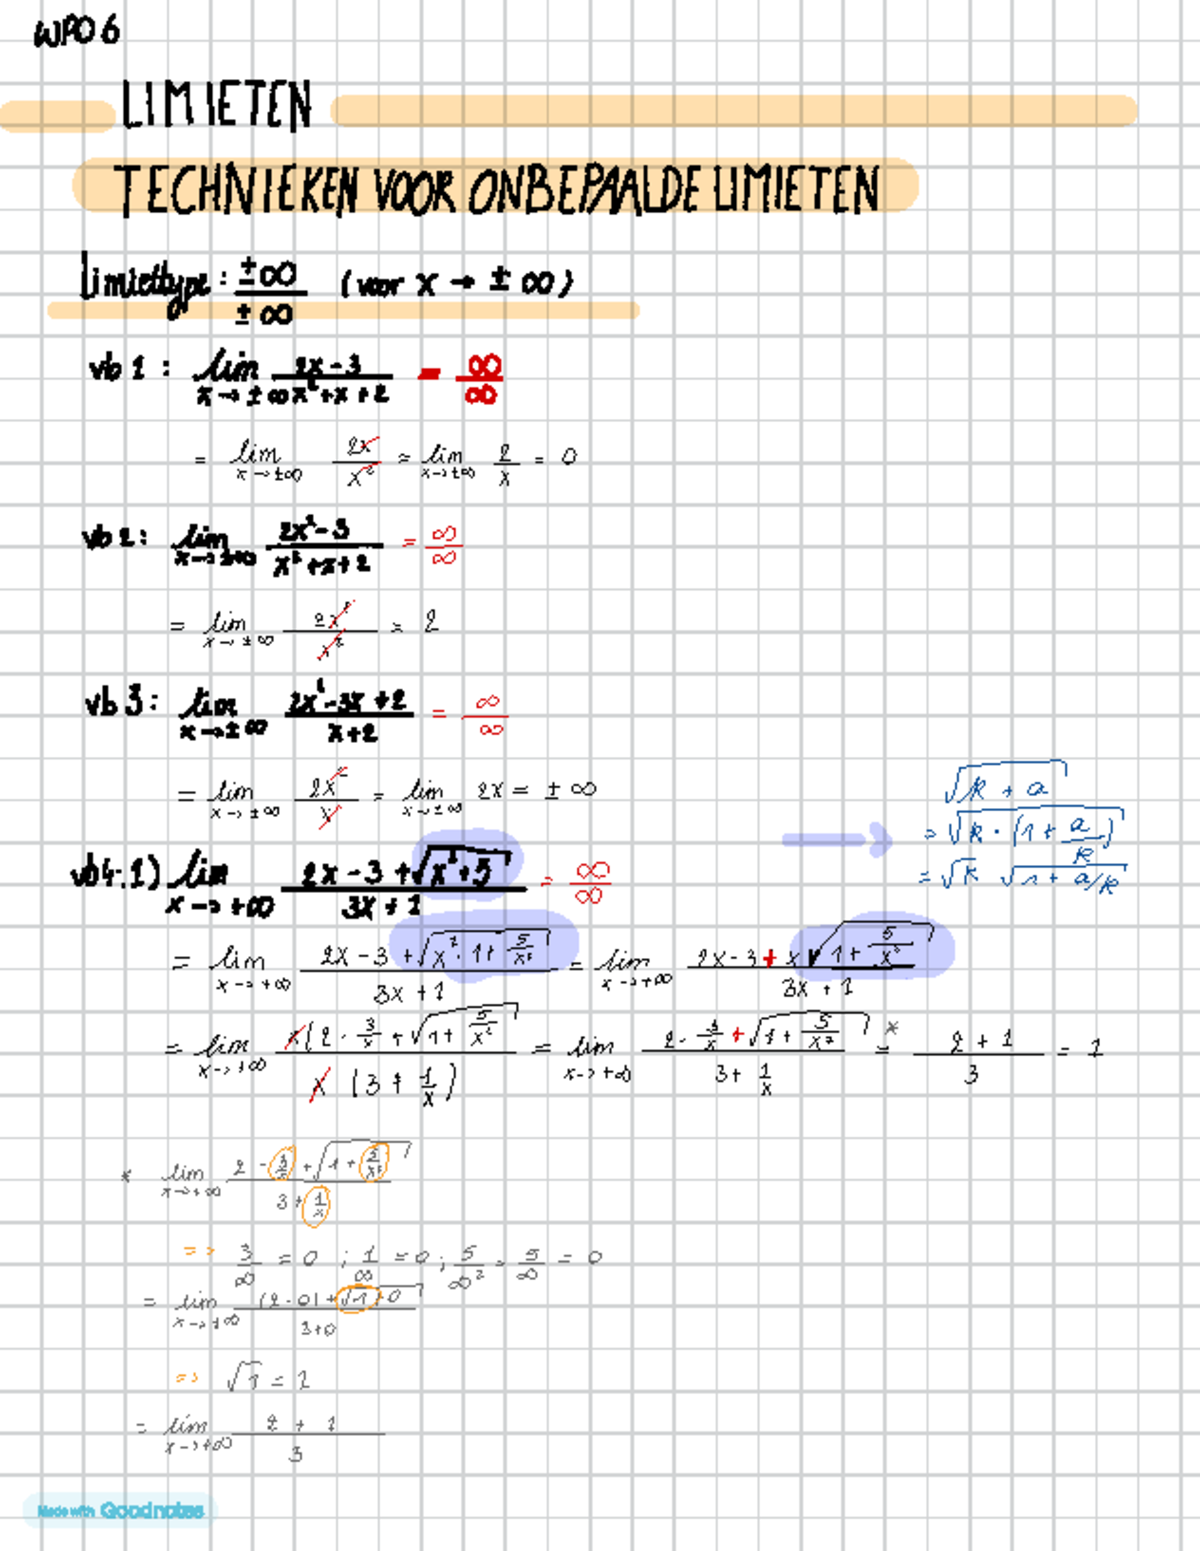 WPO 6
LIMIETEN
TECHNIEKEN VOOR ONBEPAALDE LIMIETEN
Limiettype: ±∞/±∞ (voor x → ±∞)
vb 1 : lim x→±∞ (2x-3)/(x²+x+2) = ∞/∞
= lim x→±∞ 2x/x² = lim x→±∞ 2/x = 0
vb 2 : lim x→±∞ (2x²-3)/(x²+x+2) = ∞/∞
= lim x→±∞ 2x²/x² = 2
vb 3 : lim x→±∞ (2x²-3x+2)/(x+2) = ∞/∞
= lim x→±∞ 2x²/x = lim x→±∞ 2x = ±∞
√(k + a)
= √(k · (1 + a/k))
= √k √(1 + a/k)
vb4: 1) lim x→+∞ (2x-3+√(x²+5))/(3x+1) = ∞/∞
= lim x→+∞ (2x-3+√(x²·1+5/x²))/(3x+1) = lim x→+∞ (2x-3+x√(1+5/x²))/(3x+1)
= lim x→+∞ x(2-3/x+√(1+5/x²))/x(3+1/x) = lim x→+∞ (2-3/x+√(1+5/x²))/(3+1/x) =* (2+1)/3 = 1
* lim x→+∞ (2-3/x+√(1+5/x²))/(3+1/x)
=> 3/∞ = 0 ; 1/∞ = 0 ; 5/∞² = 5/∞ = 0
= lim x→+∞ ((2-0)+√(1+0))/(3+0)
=> √1 = 1
= lim x→+∞ (2+1)/3
Made with Goodnotes